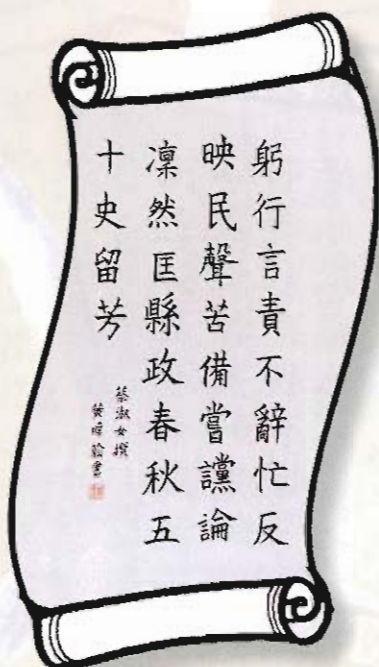 躬行言責不辭忙反
映民聲苦備嘗讜論
凜然匡縣政春秋五
十史留芳
蔡淑女撰
黃暐翰書